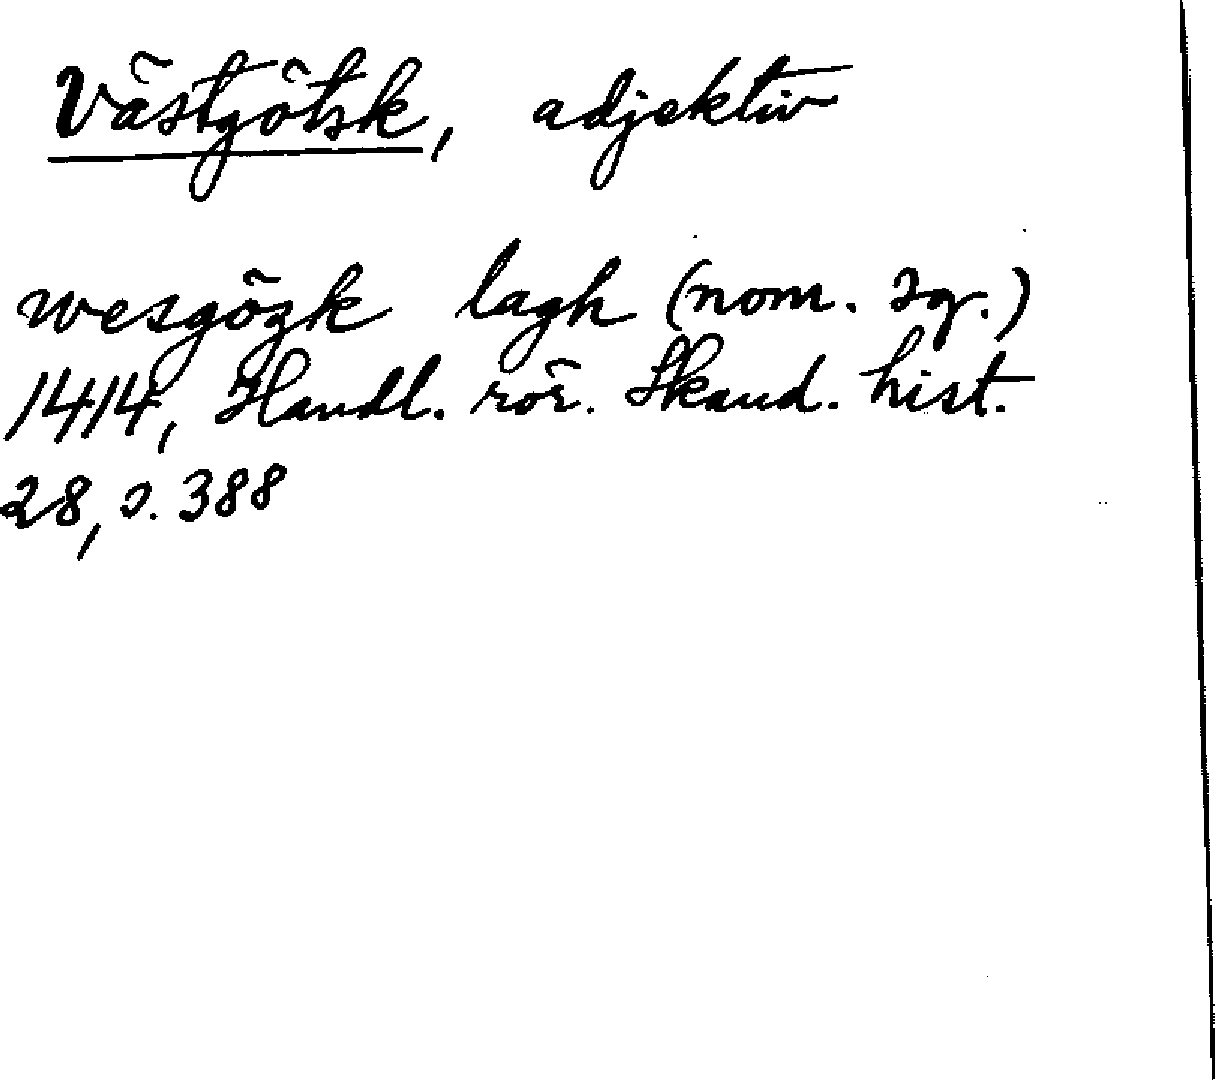 Västgötsk, adjektiv
wesgözk lagh (nom. sg.)
1414, Handl. rör. Skand. hist.
28, s. 388